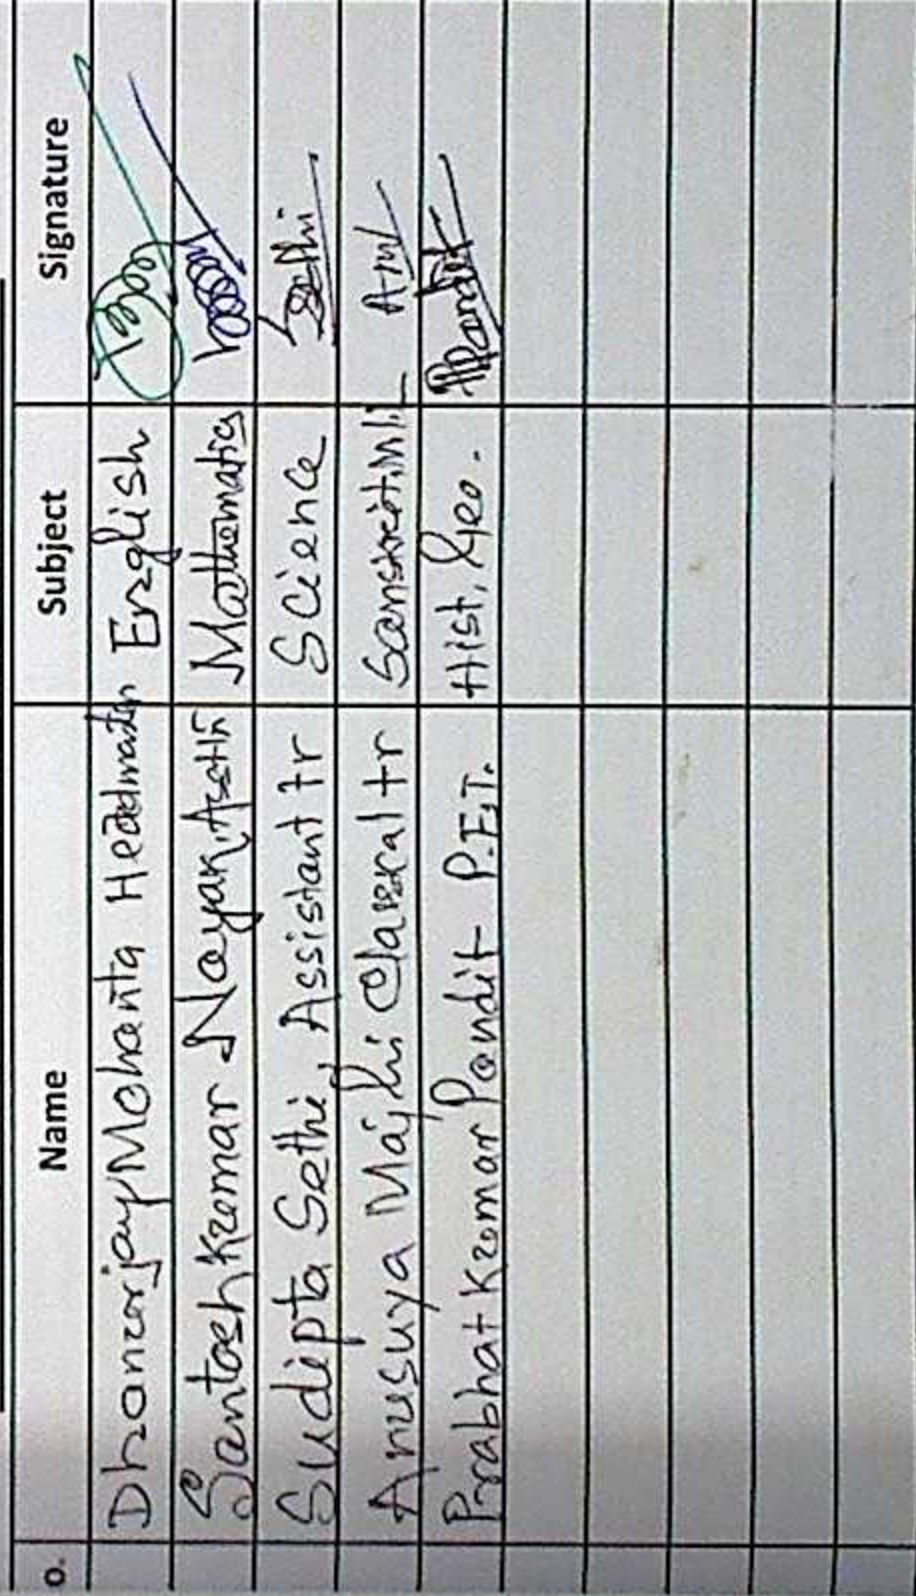 o. Name Subject Signature
Dhananjay Mohanta Headmaster English
Santosh Kumar Nayak, Asst tr Mathematics
Sudipta Sethi, Assistant tr Science Sethi
Anusuya Majhi Classical tr Sanskrit, AM
Prabhat Kumar Pandit P.E.T. Hist, Geo. Pandit